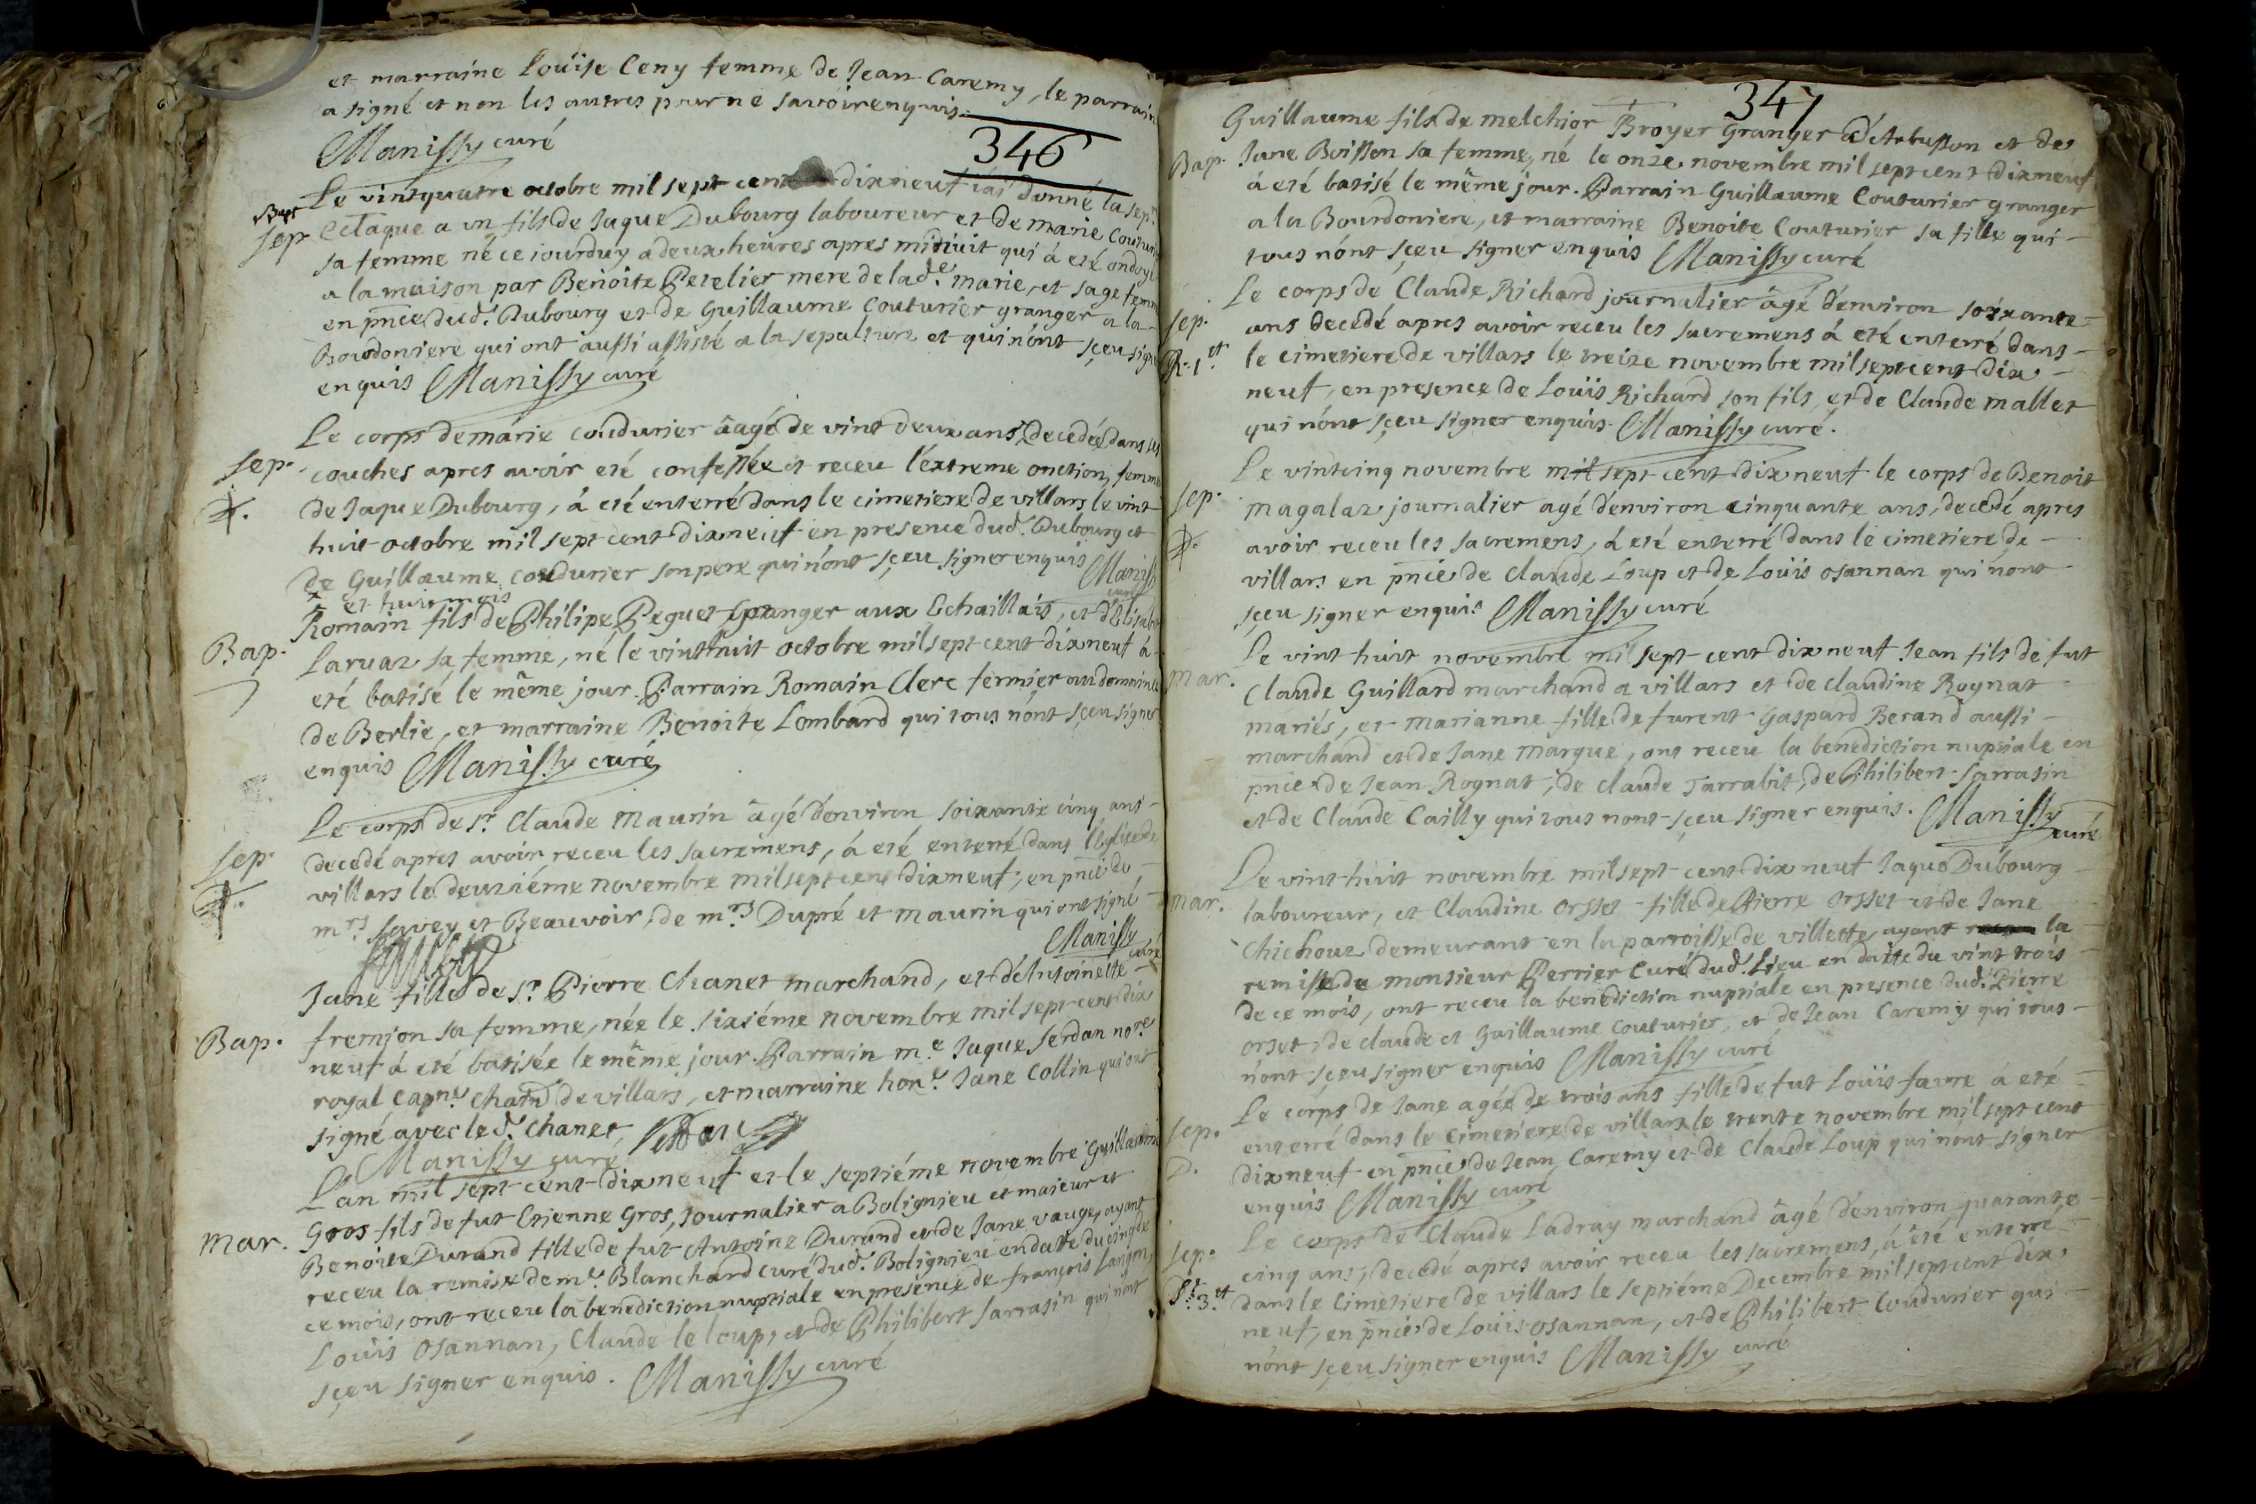 et marraine Loüise Ceny femme de Jean Caremy, le parrain
a signé et non les autres pour ne savoir enquis.
Manissy curé
346
Le vintquatre octobre mil sept cent dixneuf j'ai donné la sep.re
Bapt
Sep
a un fils de Jaque Dubourg laboureur et de marie Couturier
sa femme né ce jourduy a deux heures apres midi et qui à eté ondoyé
a la maison par Benoite Perelier mere de lad.e marie, et sage femme
en pñce dud.t Dubourg et de Guillaume Couturier granger a la
Bourdoniere qui ont aussi assisté a la sepulture et qui n'ont sçeu signer
enquis Manissy curé
Le corps de marie coudurier âagé de vint deux ans, decedée dans ses
Sep.
couches apres avoir eté confessée et receu l'extreme onction, femme
de Jaque Dubourg, à eté enterré dans le cimetiere de villars le vint
huit octobre mil sept cent dixneuf en presence dud.t Dubourg et
de Guillaume coudurier son pere qui n'ont sçeu signer enquis Manissy
curé
et huit mois
Romain fils de Philipe Peguet granger aux Echaillais, et d'Elisabet
Bap.
Larvaz sa femme, né le vinthuit octobre mil sept cent dixneuf à
eté batisé le même jour. Parrain Romain Clerc fermier au domaine
de Berlie, et marraine Benoite Lombard qui tous n'ont sçeu signer
enquis Manissy curé
Le corps de s.r Claude Maurin âgé d'environ soixante cinq ans
Sep
decedé apres avoir receu les sacremens, à eté enterré dans l'Eglise de
villars le deuziéme novembre mil sept cent dixneuf, en pñce de
m.rs Savey et Beauvoir, de m.rs Dupré et maurin qui ont signé
Manissy curé
Jane fille de s.r Pierre Chanet marchand, et d'Antoinette
Bap.
fremion sa femme, née le sixiéme novembre mil sept cent dix
neuf à eté batisée le même jour. Parrain m.e Jaque Serdan no.re
royal Capn.e chatñ de villars, et marraine hon.e Jane Collin qui ont
signé avec led.t Chanet
Manissy curé
L'an mil sept cent dixneuf et le septiéme novembre Guillaume
Mar.
Gros fils de fut Etienne Gros, Journalier a Bolignieu et majeur et
Benoite Durand fille de fut Antoine Durand et de Jane vauge, ayant
receu la remise de m.e Blanchard curé dud.t Bolignieu en date du cinq de
ce mois, ont receu la benediction nuptiale en presence de françois Laigon,
Loüis Osannan, Claude le loup, et de Philibert Sarrasin qui n'ont
sçeu signer enquis. Manissy curé
347
Guillaume fils de melchior Broyer Granger d'Arbusson et de
Bap.
Jane Buisson sa femme, né le onze novembre mil sept cent dixneuf
à eté batisé le même jour. Parrain Guillaume Couturier granger
a la Bourdoniere, et marraine Benoite Couturier sa fille qui
tous n'ont sçeu signer enquis Manissy curé
Le corps de Claude Richard journalier âgé d'environ soixante
Sep.
ans decedé apres avoir receu les sacremens à eté enterré dans
le cimetiere de villars le treize novembre mil sept cent dix
neuf, en presence de Loüis Richard son fils, et de Claude mallet
qui n'ont sçeu signer enquis. Manissy curé.
Le vintcinq novembre mil sept cent dixneuf le corps de Benoit
Sep.
magalaz journalier agé d'environ cinquante ans, decedé apres
avoir receu les sacremens, à eté enterré dans le cimetiere de
villars en pñce de Claude Loup et de Loüis osannan qui n'ont
sçeu signer enquis Manissy curé
Le vint huit novembre mil sept cent dixneuf Jean fils de fut
mar.
Claude Guillard marchand a villars et de Claudine Rognat
mariés, et marianne fille de furent Gaspard Berand aussi
marchand et de Jane margue, ont receu la benediction nuptiale en
pñce de Jean Rognat, de Claude Tarrabit, de Philibert Sarrasin
et de Claude Cailly qui tous n'ont sçeu signer enquis. Manissy
curé
Le vint huit novembre mil sept cent dixneuf Jaque Dubourg
mar.
laboureur, et Claudine orsset fille de Pierre orsset et de Jane
Chichouz demeurant en la parroisse de villette, ayant la
remise de monsieur Perrier Curé dud.t Lieu en datte du vint trois
de ce mois, ont receu la benediction nuptiale en presence dud.t Pierre
orset, de Claude et Guillaume Couturier, et de Jean Caremy qui tous
n'ont sçeu signer enquis Manissy curé
Le corps de Jane agée de trois ans fille de fut Loüis favre à eté
Sep.
enterré dans le cimetiere de villars le trente novembre mil sept cent
D.
dixneuf en pñce de Jean Caremy et de Claude Loup qui n'ont signer
enquis Manissy curé
Le corps de Claude Ladray marchand âgé d'environ quarante
Sep.
cinq ans, decedé apres avoir receu les sacremens, à eté enterré
dans le Cimetiere de villars le septiéme Decembre mil sept cent dix
neuf, en pñce de Loüis osannan, et de Philibert Coudurier qui
n'ont sçeu signer enquis Manissy curé